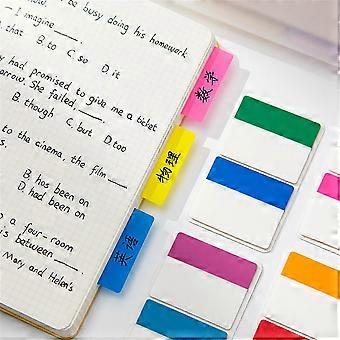 be busy doing his homework
I imagine ____.
that B. to C. so D. it
had promised to give me a ticket
orrow. She failed ____.
B. though C. but D. too
to the cinema, the film ____
B. has been on
D. had been on
a four-room
is between ____.
Mary and Helen's
数学
物理
英语